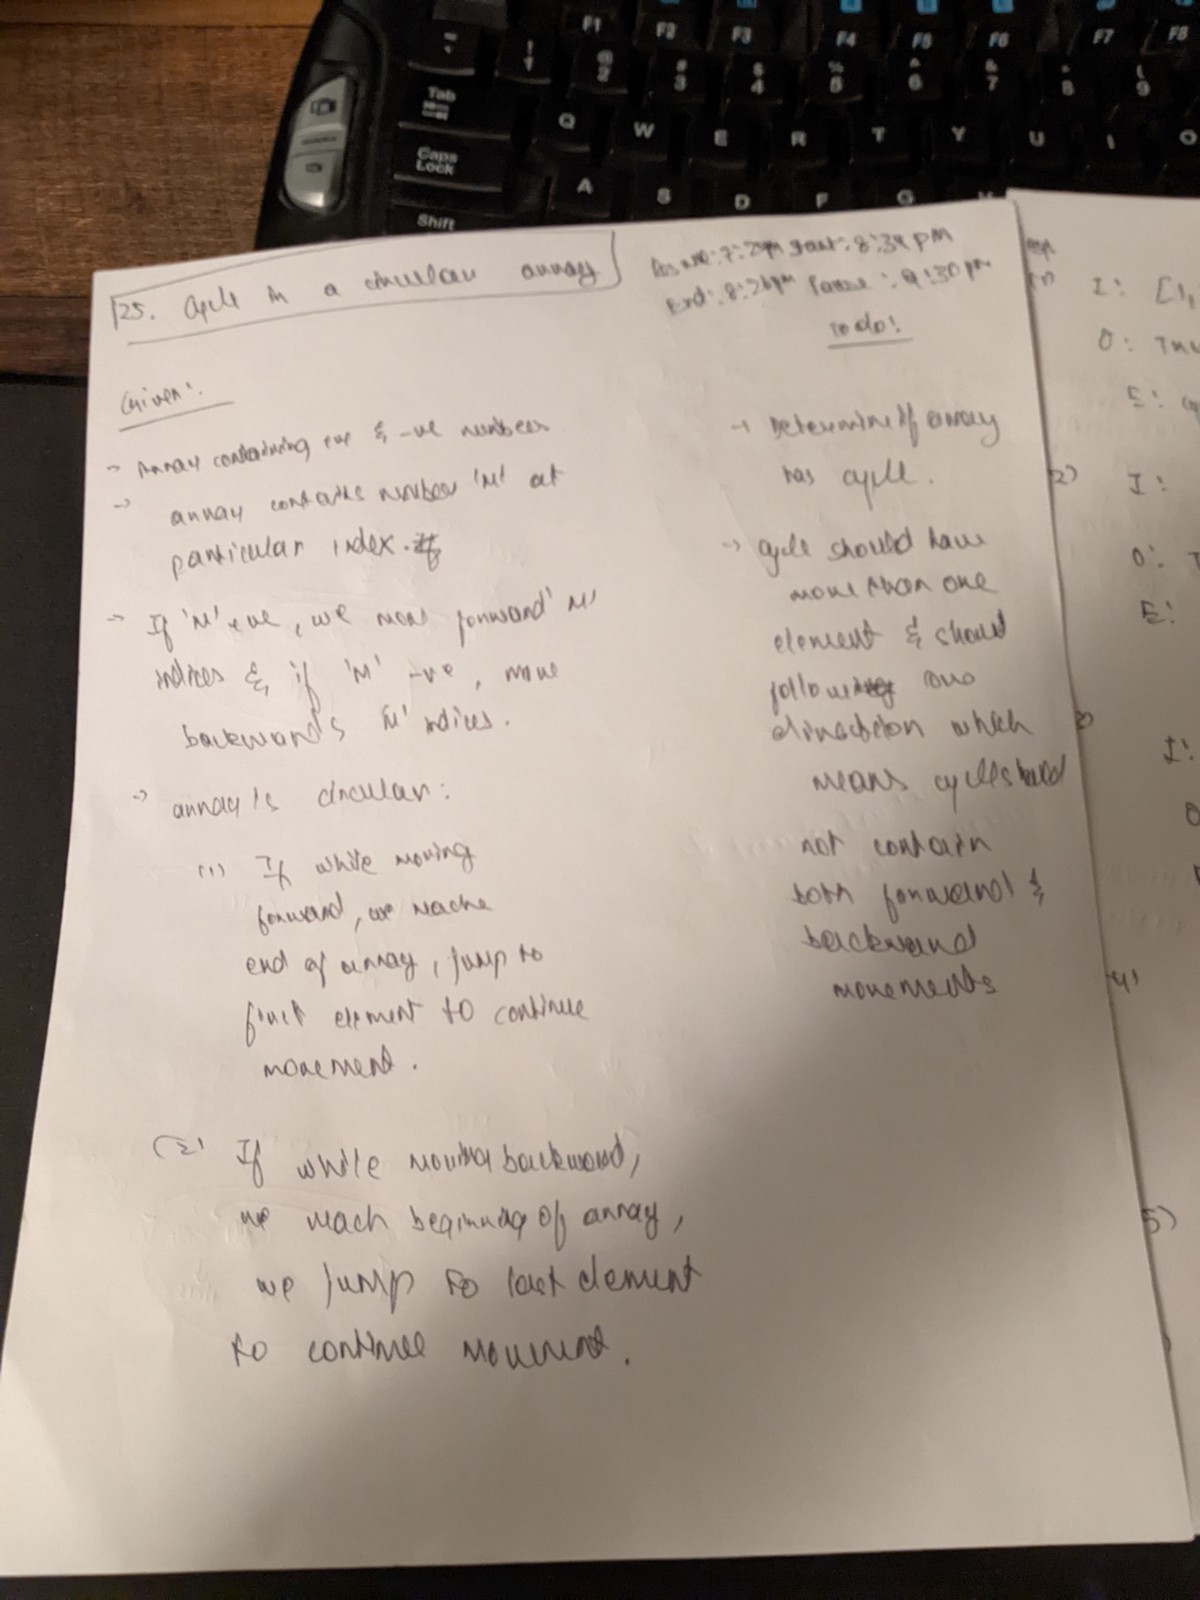 F1 F2 F3 F4 F5 F6 F7 F8
! 1 @ 2 # 3 $ 4 % 5 ^ 6 & 7 * 8 ( 9
Tab Q W E R T Y U I O
Caps Lock A S D F G
Shift
25. Cycle in a circular array
start: 8:34 pm
End: 8:26pm Pause: 9:30 pm
Given:
→ Array containing +ve & -ve numbers
→ array contains number 'M' at
particular index.
→ If 'M' +ve, we move forward 'M'
indices & if 'M' -ve, move
backwards 'M' indices.
→ array is circular:
(1) If while moving
forward, we reache
end of array, jump to
first element to continue
movement.
(2) If while moving backward,
we reach beginning of array,
we jump to last element
to continue movement.
to do:
→ Determine if array
has cycle.
→ cycle should have
more than one
element & should
follow one
direction which
means cycle should
not contain
both forward &
backward
movements
1)
I: [1,
O:
E:
2)
I:
O:
E:
I:
4)
5)